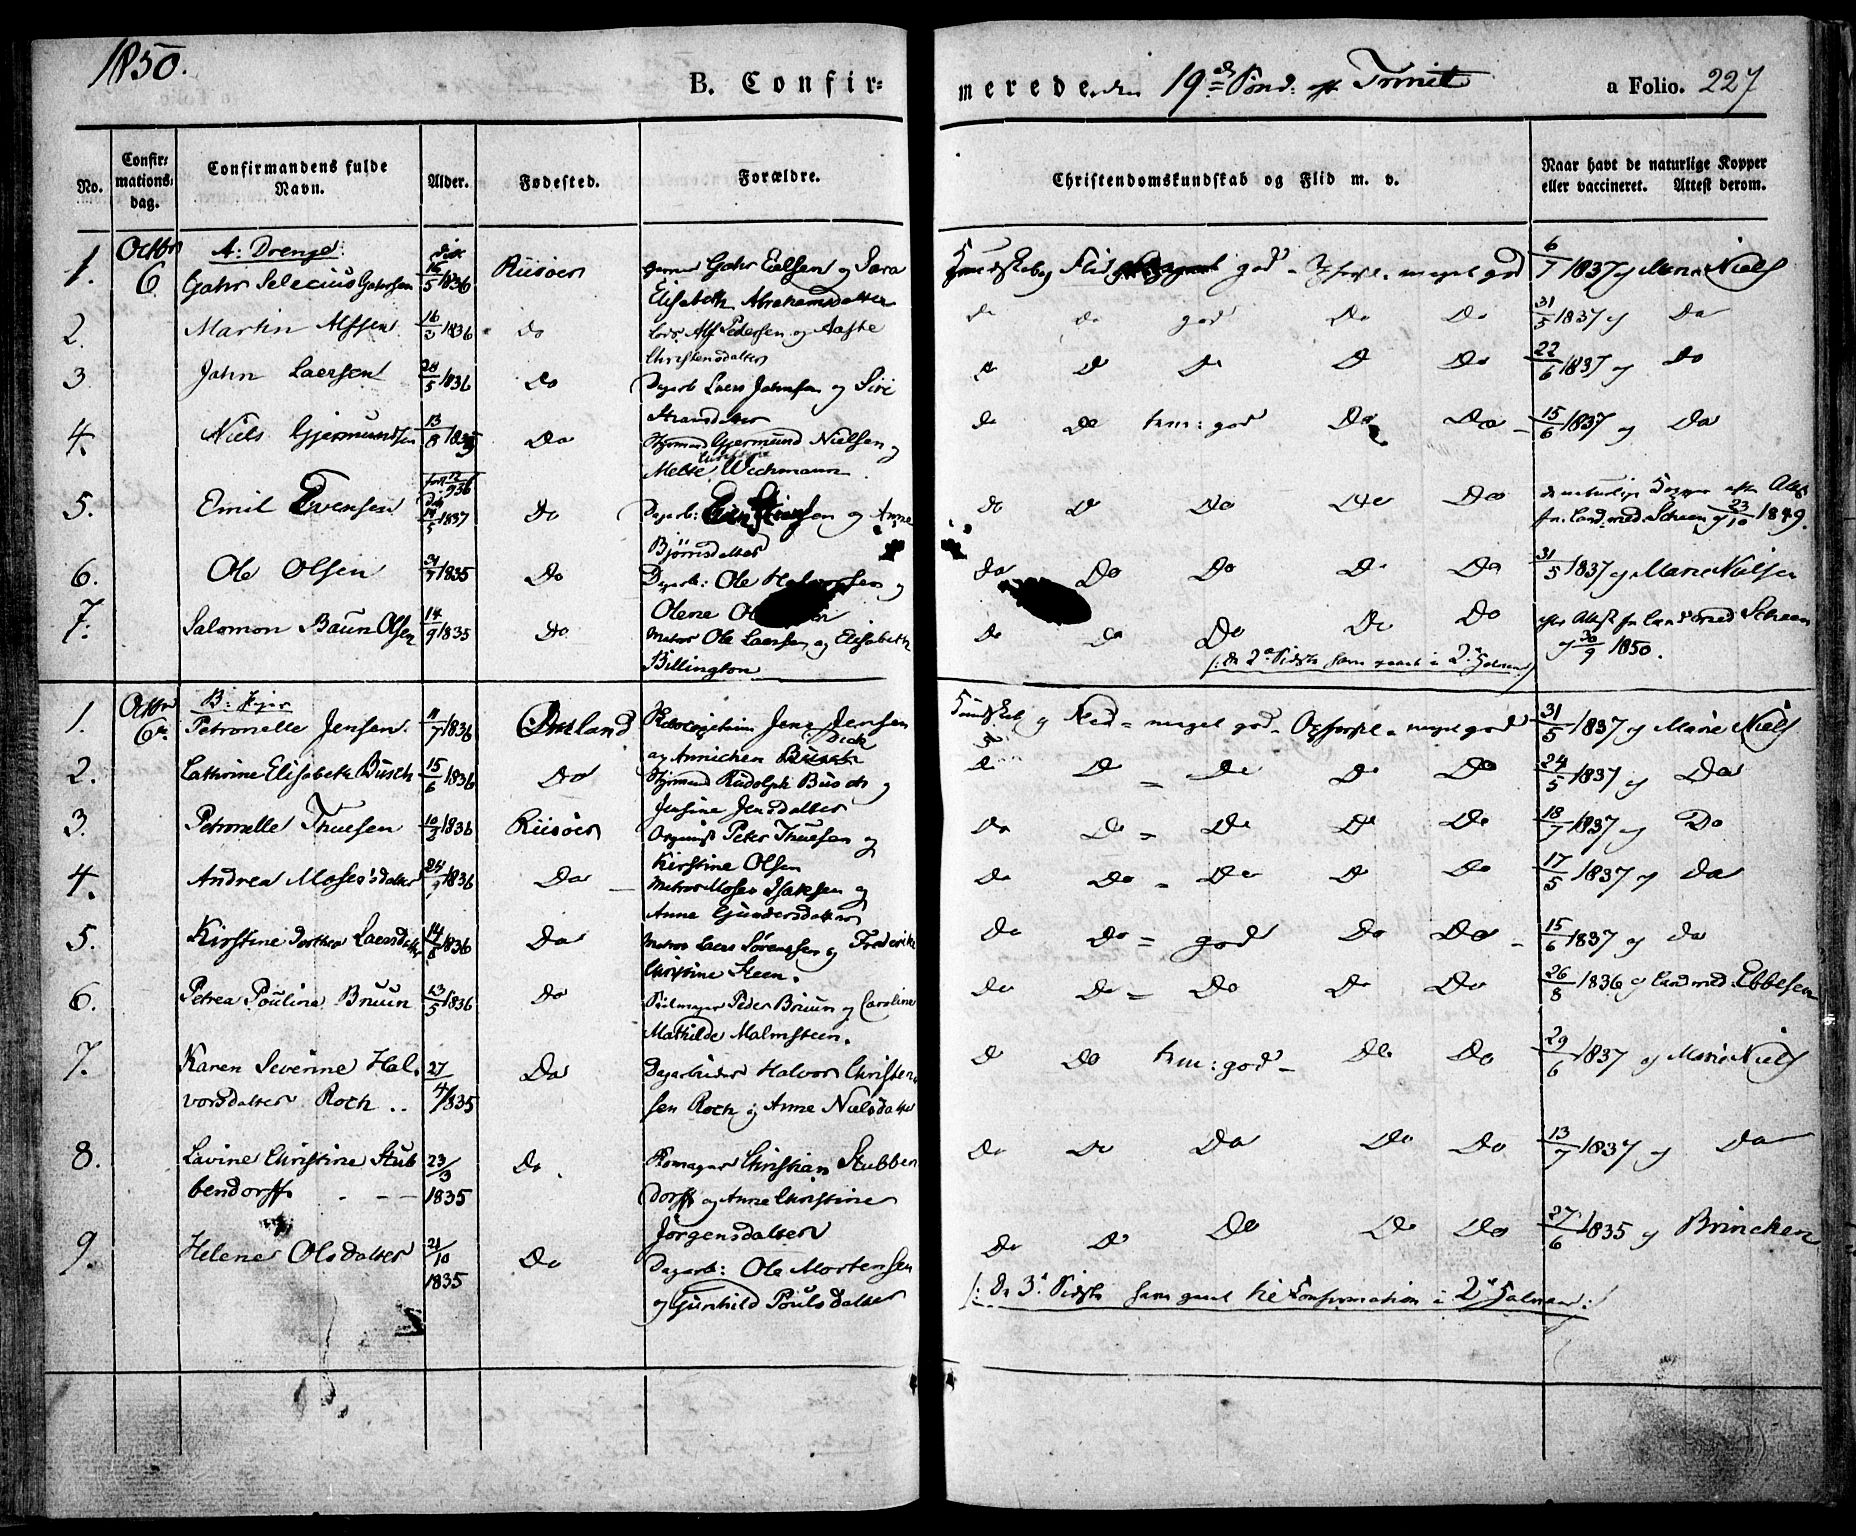 1850.
B. Confirmerede den 19de Sønd: eft Trinit a Folio. 227
No. Confirmations-dag. Confirmandens fulde Navn. Alder. Fødested. Forældre. Christendomskundskab og Flid m. v. Naar havt de naturlige Kopper eller vaccineret. Attest derom.
Octbr A: Drenge: døbt
1. 6 Gahr Selecius Gahrsen 16/5 1836 Riisöer Gahr Eelsen og Sara Kundskab og Flid god - Opførsel - meget god 6/7 1837 og Marie Niels
Elisabeth Abrahamsdatter
2. Martin Alfsen 16/3 1836 Do Lods. Alf Pedersen og Aaste do do god Do Do 31/5 1837 og Do
Christensdatter
3 Jahn Laersen 28/5 1836 Do Dagarb Laers Jahnsen og Siri do do do Do Do 22/6 1837 og Do
4. Niels Gjermundsen 13/8 1835 Do Styrmand Gjermund Nielsen og do do tem: god Do Do 15/6 1837 og Do
Mette Christine Wichmann
5. Emil Evensen født 12/9 36 Døbt 14/5 1837 Do Dagarb: og Anne do do Do Do Do de naturlige Kopper efter Attest
fra Land.med. Scheen 23/10 1849.
Bjørnsdatter
6. Ole Olsen 31/7 1835 Do Dagarb: Ole Halvorsen og Do Do Do Do Do 31/5 1837 og Marie Nielsen
Olene
7. Salomon Baun Olsen 14/9 1835 Do Matros Ole Laersen og Elisabeth Do Do Do Do Do efter Attest fra Landmed Scheen
Billington /: de 2de Sidste have gaaet i 2de Halvaar :/ 30/9 1850.
Octbr B: Piger
1. 6te Petronelle Jensen. 11/7 1836 Øiesland Jens Jensen Kundskab og Flid = meget god - Opførsel - meget god 31/5 1837 og Marie Niels
og Annichen Dick
2. Cathrine Elisabeth Busch 15/6 1836 Do Styrmand Rudolph Busch og Do Do - Do Do Do 24/5 1837 og Do
Jensine Jensdatter
3. Petronelle Thuesen 10/3 1836 Riisöer Organist Peter Thuesen og Do Do = Do Do Do 18/7 1837 og Do
Kirstine Olsen
4. Andrea Moses'datter 24/9 1836 Do Matros Moses Isaksen og Do Do - Do Do Do 17/5 1837 og Do
Anne Gundersdatter
5. Kirstine Dorthea Laersdatter 14/8 1836 Do Matros Laers Sörensen og Frederikke Do Do = god Do Do - 15/6 1837 og Do
Christine Steen.
6. Petrea Pouline Bruun 13/5 1836 Do Seilmager Peder Bruun og Caroline Do Do = Do Do Do 26/8 1836 og Landmed. Ebbesen
Mathilde Malmsteen.
7. Karen Severine Hal- 27/ Do Dagarbeider Halvor Christen- Do Do tem: god - Do Do 29/6 1837 og Marie Niels
vorsdatter Roch .. 4/1835 sen Roch og Anne Nielsdatter
8. Lavine Christine Stub 23/3 Do . Komager Christian Stubben Do Do Do Do Do 13/7 1837 og Do
bendorff - - - 1835 dorff og Anne Christine
Jörgensdatter
9. Helene Olsdatter 21/10 Do Dagarb: Ole Mortensen Do Do Do Do Do 27/6 1835 og Brincken
1835 og Gunhild Poulsdatter /: De 3de Sidste have gaaet til Confirmation i 2de Halvaar :/